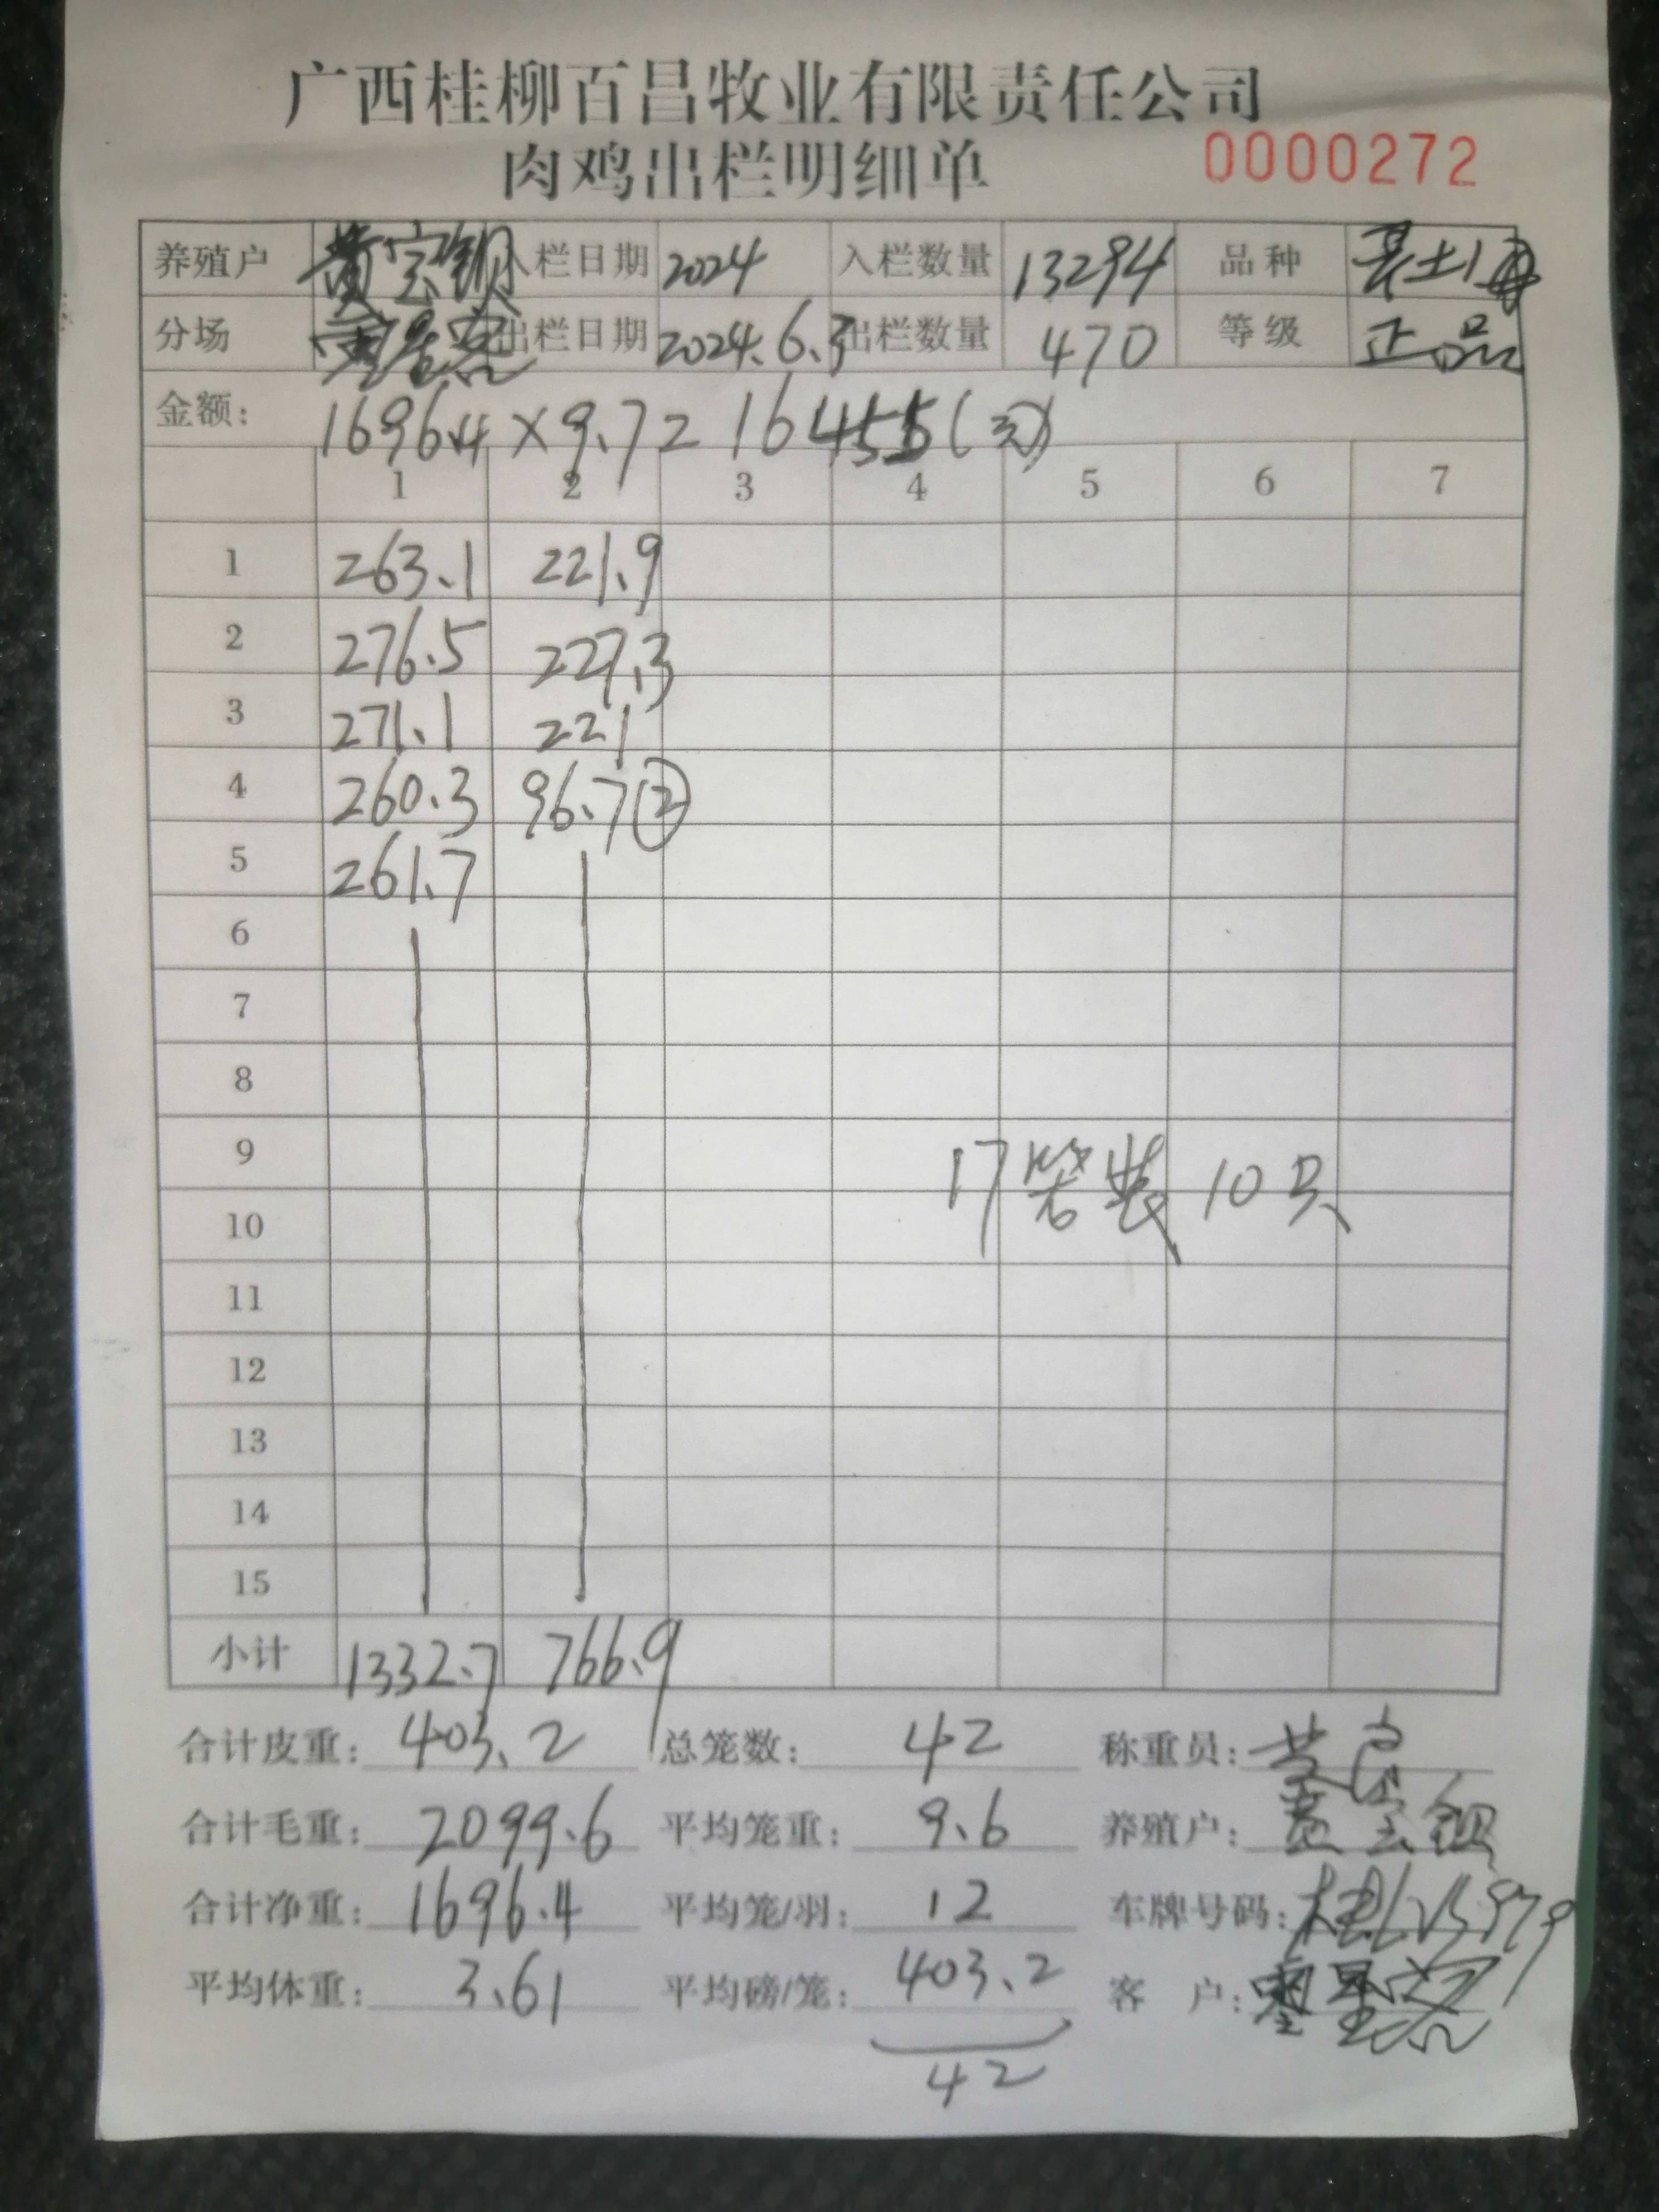 广西桂柳百昌牧业有限责任公司
肉鸡出栏明细单 0000272
养殖户 黄宝钢 入栏日期 2024 入栏数量 13294 品种 土1
分场 出栏日期 2024.6.3 出栏数量 470 等级 正品
金额: 1696.4×9.7=16455(元)
1 2 3 4 5 6 7
1 263.1 221.9
2 276.5 227.3
3 271.1 221
4 260.3 96.7②
5 261.7
6
7
8
9 17笼装10只
10
11
12
13
14
15
小计 1332.7 766.9
合计皮重: 403.2 总笼数: 42 称重员:
合计毛重: 2099.6 平均笼重: 9.6 养殖户:
合计净重: 1696.4 平均笼/羽: 12 车牌号码:
平均体重: 3.61 平均磅/笼: 403.2 客 户:
42